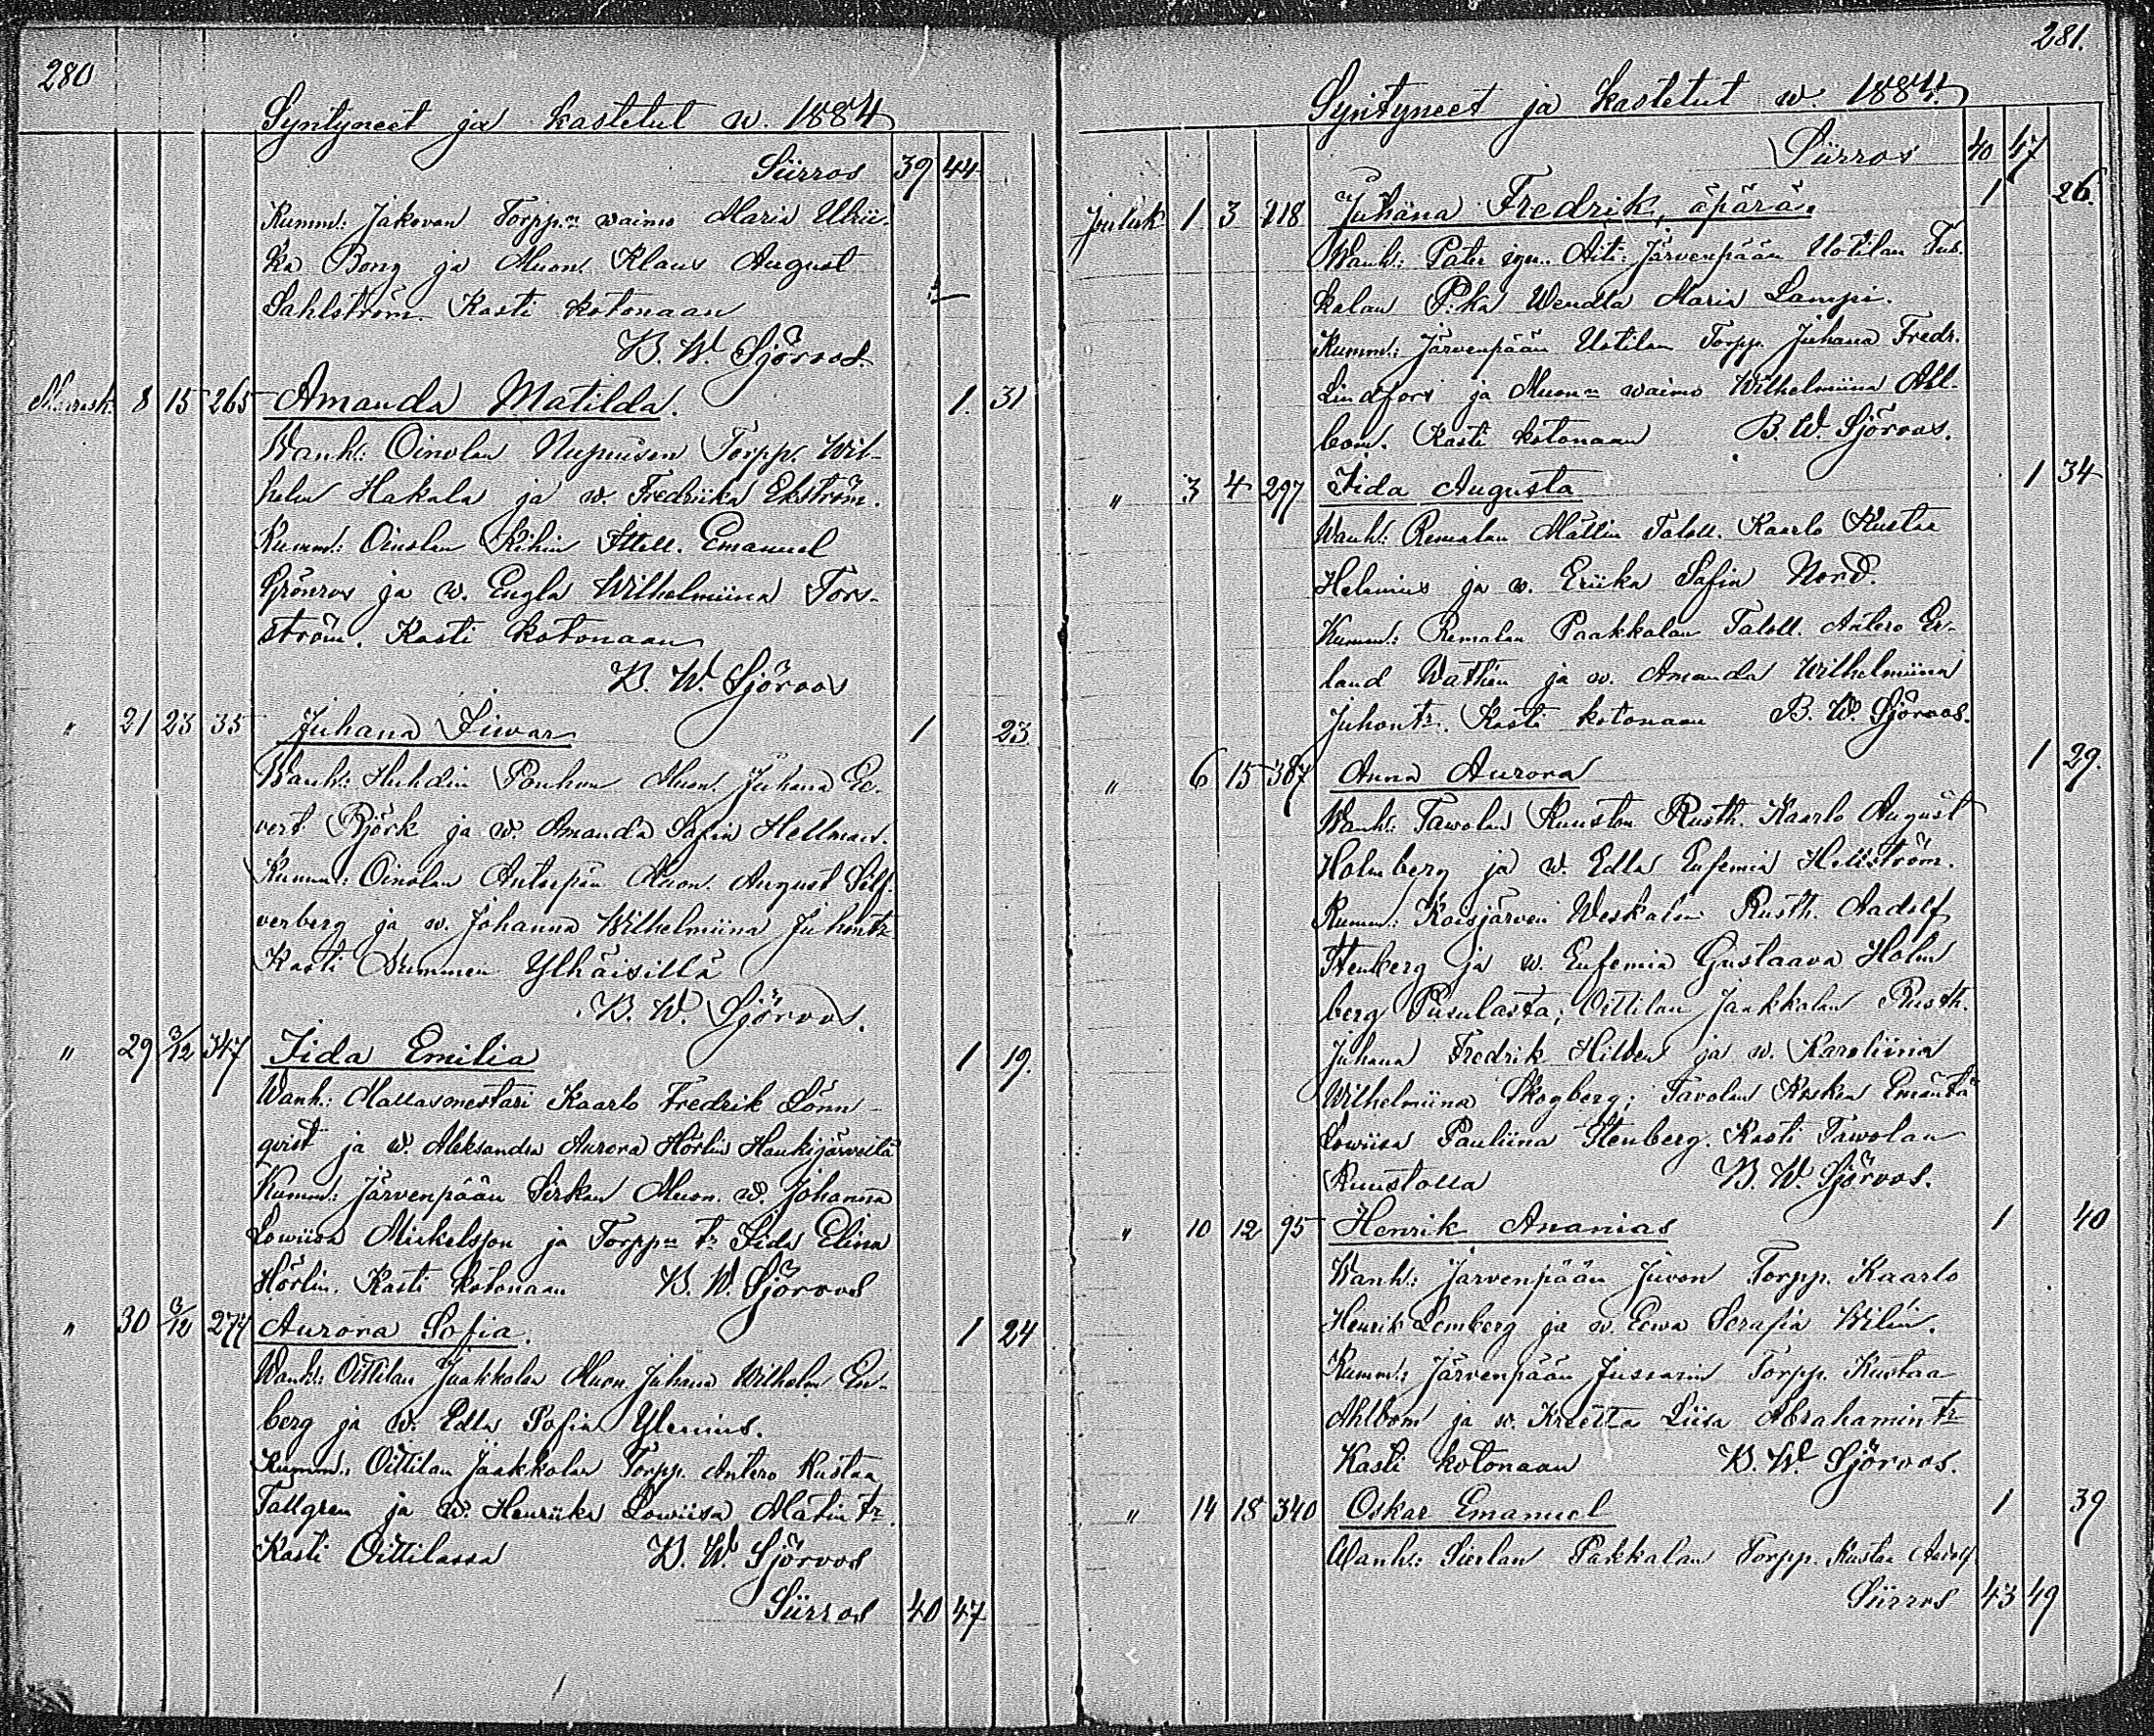 280
Syntyneet ja kastetut w. 1884
Siirros 39 44
Kumm: Jakovan Torpp:n waimo Maria Ulrii-
ka Bong ja Muon. Klaus August
Sahlström. Kasti kotonaan
B. W. Sjöroos.
Marrask. 8 15 265 Amanda Matilda. 1. 31
Wanh: Oinolan Torpp. Wil-
helm Hakala ja w. Fredriika Ekström.
Kumm: Oinolan Kihin Ittell. Emanuel
Grönros ja w. Engla Wilhelmiina Fors-
ström. Kasti kotonaan
B. W. Sjöroos
" 21 23 35 Juhana Iiwar 1 23
Wanh: Huhdin Pouhon Muon. Juhana Ed-
vert Björk ja w. Amanda Sofia Hellman.
Kumm: Oinolan Muon. August Silf-
verberg ja w. Johanna Wilhelmiina Juhontr.
Kasti Nummen Ylhäisillä
B. W. Sjöroos.
" 29 3/12 347 Iida Emilia 1 19.
Wanh: Mallasmestari Kaarlo Fredrik Lönn-
qvist ja w. Aleksandra Aurora Hörlin Haukijärveltä
Kumm: Järvenpään Sirkan Muon. w. Johanna
Lowiisa Mickelsson ja Torpp:n tr Iida Elina
Hörlin. Kasti kotonaan B. W. Sjöroos
" 30 3/12 277 Aurora Sofia. 1 24
Wanh: Oittilan Jaakkolan Muon. Juhana Wilhelm En-
berg ja w. Edla Sofia Ylenius.
Kumm: Oittilan Jaakkolan Torpp. Antero Kustaa
Tallgren ja w. Henriika Lowiisa Matintr.
Kasti Oittilassa B. W. Sjöroos
Siirros 40 47
281.
Syntyneet ja kastetut w. 1884.
Siirros 40 47
Jouluk 1 3 218 Juhana Fredrik, äpärä. 1 26.
Wanh: Pater ign. Äiti: Järvenpään Uotilan Tus-
kalan P:ka Wendla Maria Lampi.
Kumm: Järvenpään Uotilan Torpp. Juhana Fredr.
Lindfors ja Muon:n waimo Wilhelmiina Ahl-
bom. Kasti kotonaan B. W. Sjöroos.
" 3 4 297 Iida Augusta 1 34
Wanh: Remalan Mattin Taloll. Kaarlo Kustaa
Helenius ja w. Eriika Sofia Nord.
Kumm: Remalan Paakkalan Taloll. Antero Er-
land Wathen ja w. Amanda Wilhelmiina
Juhontr. Kasti kotonaan B. W. Sjöroos.
" 6 15 387 Anna Aurora 1 29.
Wanh: Tawolan Kuuston Rusth. Kaarlo August
Holmberg ja w. Edla Eufemia Hellström.
Kumm: Koisjärven Weskalan Rusth. Aadolf
Stenberg ja w. Eufemia Gustaava Holm
berg Pusulasta; Oittilan Jaakkolan Rusth.
Juhana Fredrik Hilden ja w. Karoliina
Wilhelmiina Skogberg; Tavolan Kosken Emäntä
Lowiisa Pauliina Stenberg. Kasti Tawolan
Kuustolla B. W. Sjöroos.
" 10 12 95 Henrik Ananias 1 40
Wanh: Järvenpään Juvon Torpp. Kaarlo
Henrik Lemberg ja w. Eewa Serafia Wilin.
Kumm: Järvenpään Jussarin Torpp. Kustaa
Ahlbom ja w. Kreetta Liisa Abrahamintr
Kasti kotonaan B. W. Sjöroos.
" 14 18 340 Oskar Emanuel 1 39
Wanh: Sierlan Pakkalan Torpp. Kustaa Adolf
Siirros 43 49